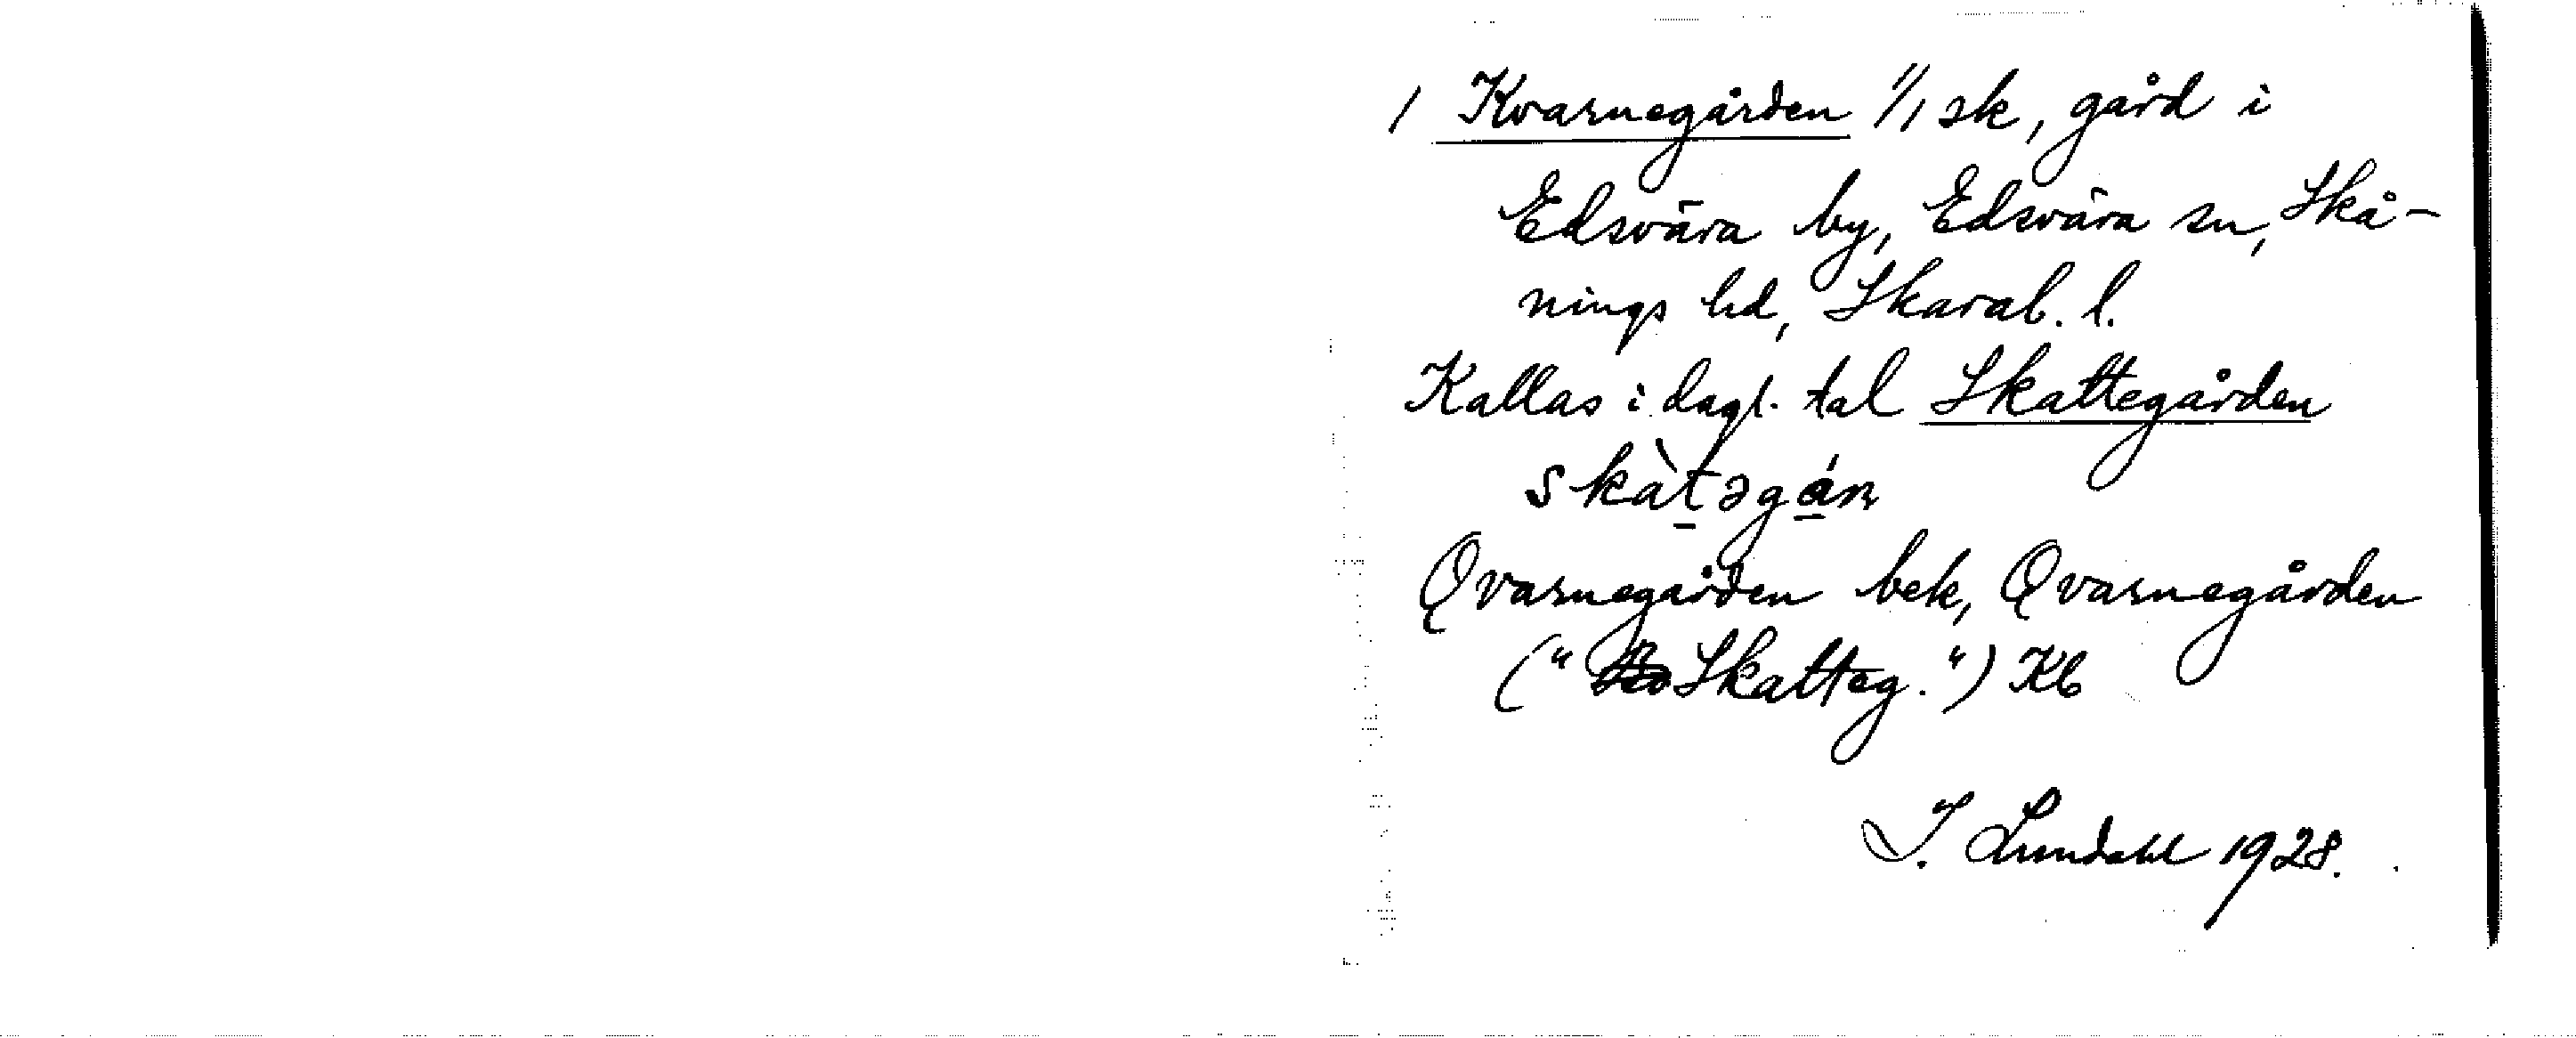 / Kvarnegården 1/1 sk, gård i
Edsvära by, Edsvära sn, Skå-
nings hd, Skarab. l.
Kallas i dagl. tal Skattegården
skàt̲əgá̲n
Qvarnegården bek, Qvarnegården
(" Skatteg.") Kb
I. Lundahl 1928.